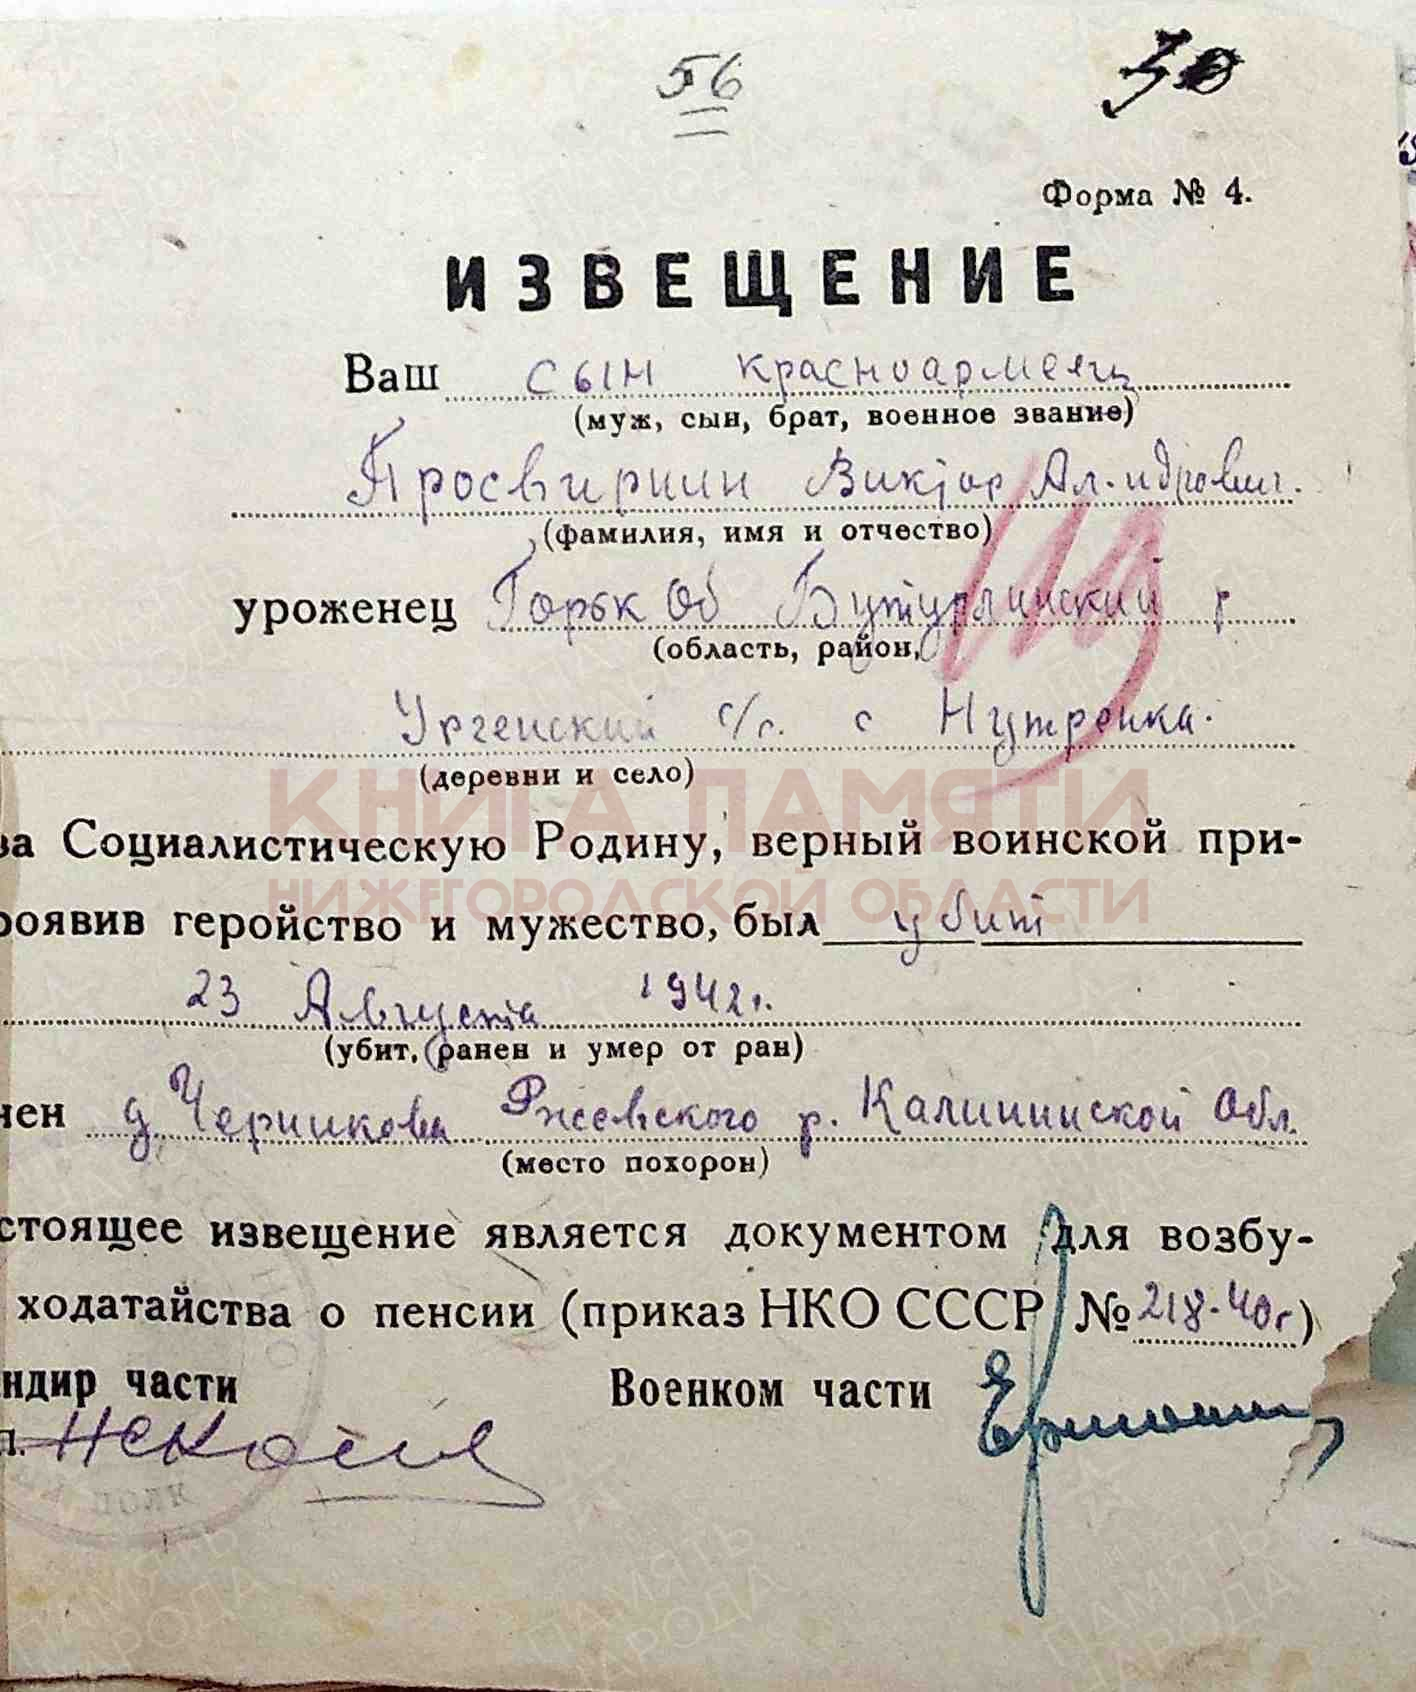 56
30
Форма № 4.
ИЗВЕЩЕНИЕ
Ваш сын красноармеец
(муж, сын, брат, военное звание)
Просвирнин Виктор Ал-ндрович.
(фамилия, имя и отчество)
уроженец Горьк Об Бутурлинский р
(область, район,
Ургенский с/с. с Нутренка.
(деревни и село)
КНИГА ПАМЯТИ
за Социалистическую Родину, верный воинской при-
НИЖЕГОРОДСКОЙ ОБЛАСТИ
роявив геройство и мужество, был убит
23 Августа 1942г.
(убит, ранен и умер от ран)
нен д. Черникова Ржевского р. Калининской Обл.
(место похорон)
стоящее извещение является документом для возбу-
ходатайства о пенсии (приказ НКО СССР № 218-40г)
ндир части Военком части
п.
ПАМЯТЬ НАРОДА